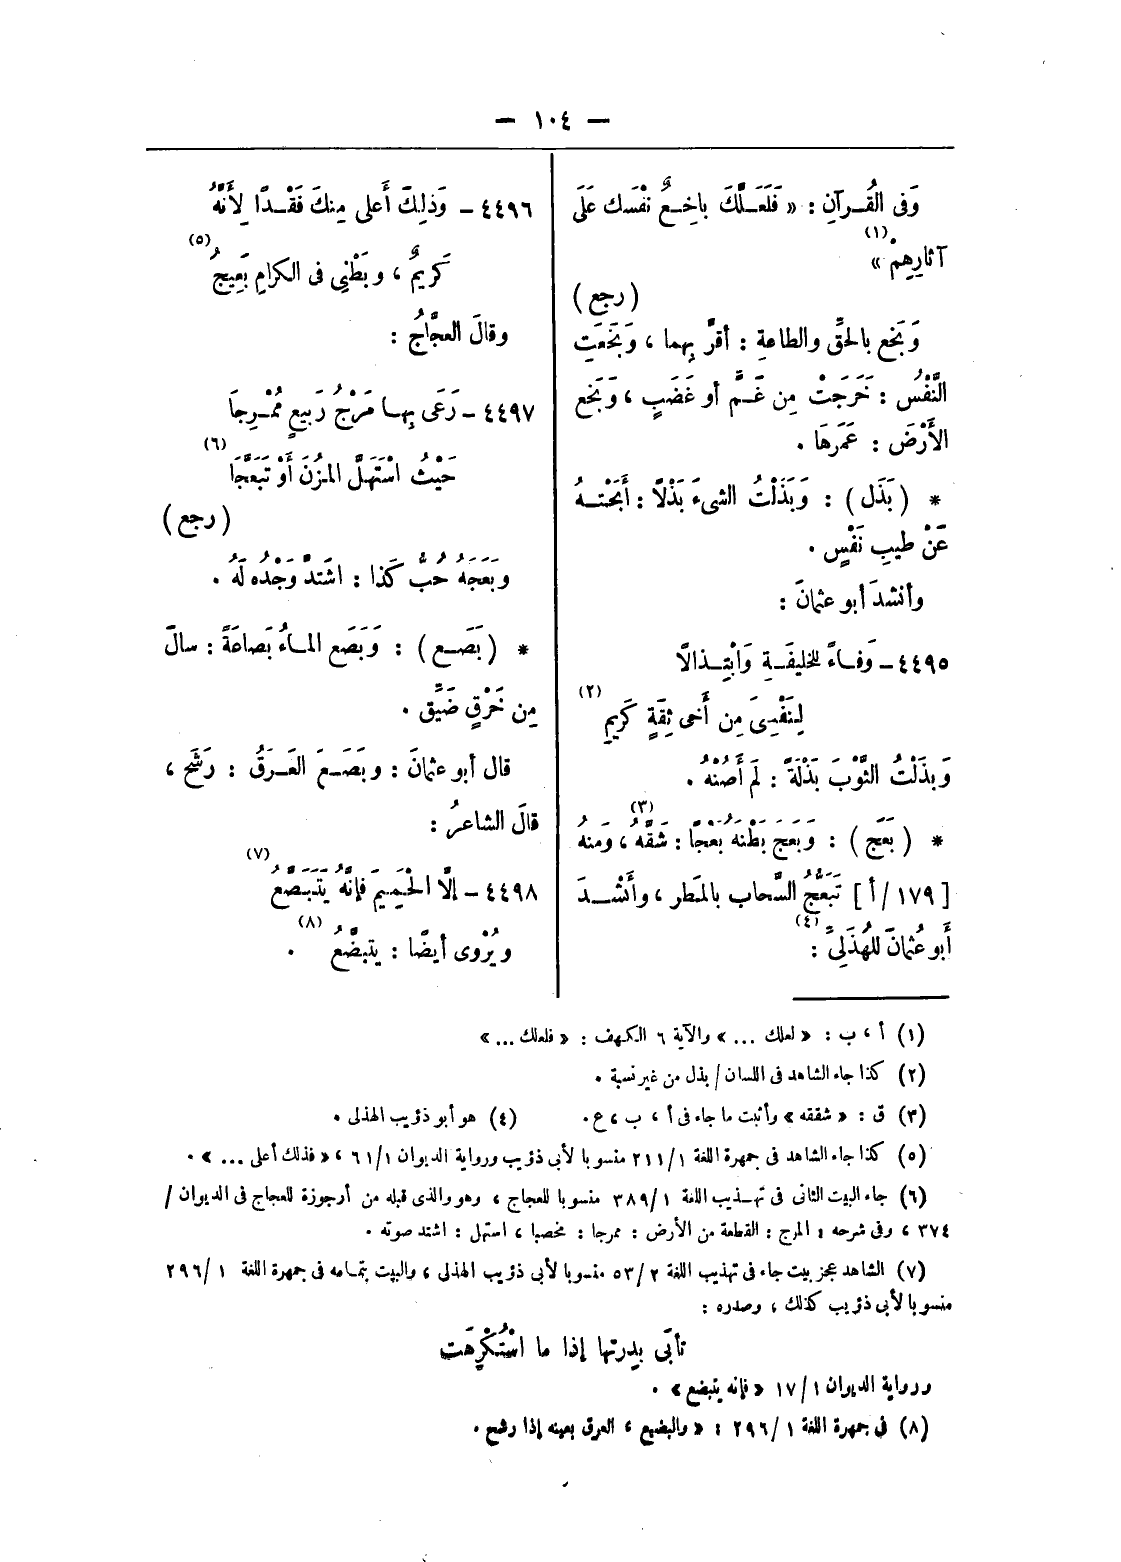 — ١٠٤ —
وَفى القُـرآنِ : « فَلَعَـلَّكَ باخِـعٌ نفْسَك عَلَى
آثارِهِمْ » (١)
( رجع )
وَبَخع بالحَقِّ والطاعةِ : أقرَّ بِهما ، وَبَخَعَتِ
النَّفْسُ : خَرَجَتْ مِن غَـمٍّ أو غَضَبٍ ، وَبَخع
الأَرْضَ : عَمَرَهَا .
* ( بَذَل ) : وَبَذَلْتُ الشىءَ بَذْلاً : أَبَحْتـهُ
عَنْ طيبِ نَفْسٍ .
وأنشدَ أبو عثمانَ :
٤٤٩٥ – وَفـاءً للخليفَـةِ وَابْتِـذالًا
لِنَفْسِىَ مِن أَخى ثِقَةٍ كَرِيمِ (٢)
وَبذَلْتُ الثَّوْبَ بَذْلَةً : لَم أَصُنْهُ .
* ( بَعَج ) : وَبَعَجَ بَطْنَهُ بَعْجًا : شَقَّهُ (٣) ، وَمنهُ
[ ١٧٩/أ ] تَبَعُّجُ السَّحاب بالمَطر ، وأَنْشَـدَ
أَبو عُثمانَ للهُذَلِىِّ (٤) :
٤٤٩٦ – وَذلِكَ أَعلى مِنكَ فَقْـدًا لِأَنَّهُ
كَرِيمٌ ، وبَطْنِى فى الكرامِ بَعِيجُ (٥)
وقالَ العجَّاجُ :
٤٤٩٧ – رَعَى بِهـا مَرْجُ رَبيعٍ مُمْـرِجَا
حَيْثُ اسْتَهلَّ المزْنُ أَوْ تَبَعَّجَا (٦)
( رجع )
وبَعَجَهُ حُبُّ كَذا : اشتَدَّ وَجْدُه لَهُ .
* ( بَصَـع ) : وَبَصَع المـاءُ بَصاعَةً : سالَ
مِن خَرْقٍ ضَيِّق .
قال أبو عثمانَ : وبَصَـعَ العَـرَقُ : رَشَحَ ،
قالَ الشاعرُ :
٤٤٩٨ – إلَّا الْحَمِيمَ فإِنَّهُ يَتَبَصَّعُ (٧)
ويُرْوى أيضًا : يتبضَّعُ (٨) .
(١) أ ، ب : « لعلك ... » والآية ٦ الكهف : « فلعلك ... »
(٢) كذا جاء الشاهد فى اللسان / بذل من غير نسبة .
(٣) ق : « شققه » وأثبت ما جاء فى أ ، ب ، ع . (٤) هو أبو ذؤيب الهذلى .
(٥) كذا جاء الشاهد فى جمهرة اللغة ٢١١/١ منسوبا لأبى ذؤيب ورواية الديوان ٦١/١ ، « فذلك أعلى ... » .
(٦) جاء البيت الثانى فى تهـذيب اللغة ٣٨٩/١ منسوبا للعجاج ، وهو والذى قبله من أرجوزة للعجاج فى الديوان /
٣٧٤ ، وفى شرحه : المرج : القطعة من الأرض : ممرجا : مخصبا ، استهل : اشتد صوته .
(٧) الشاهد عجز بيت جاء فى تهذيب اللغة ٥٣/٢ منسوبا لأبى ذؤيب الهذلى ، والبيت بتمـامه فى جمهرة اللغة ٢٩٦/١
منسوبا لأبى ذؤيب كذلك ، وصدره :
تأبَى بِدِرتها إذا ما اسْتُكْرِهَت
ورواية الديوان ١٧/١ « فإنه يتبضع » .
(٨) فى جمهرة اللغة ٢٩٦/١ : « والبضيع ، العرق بعينه إذا رشح .